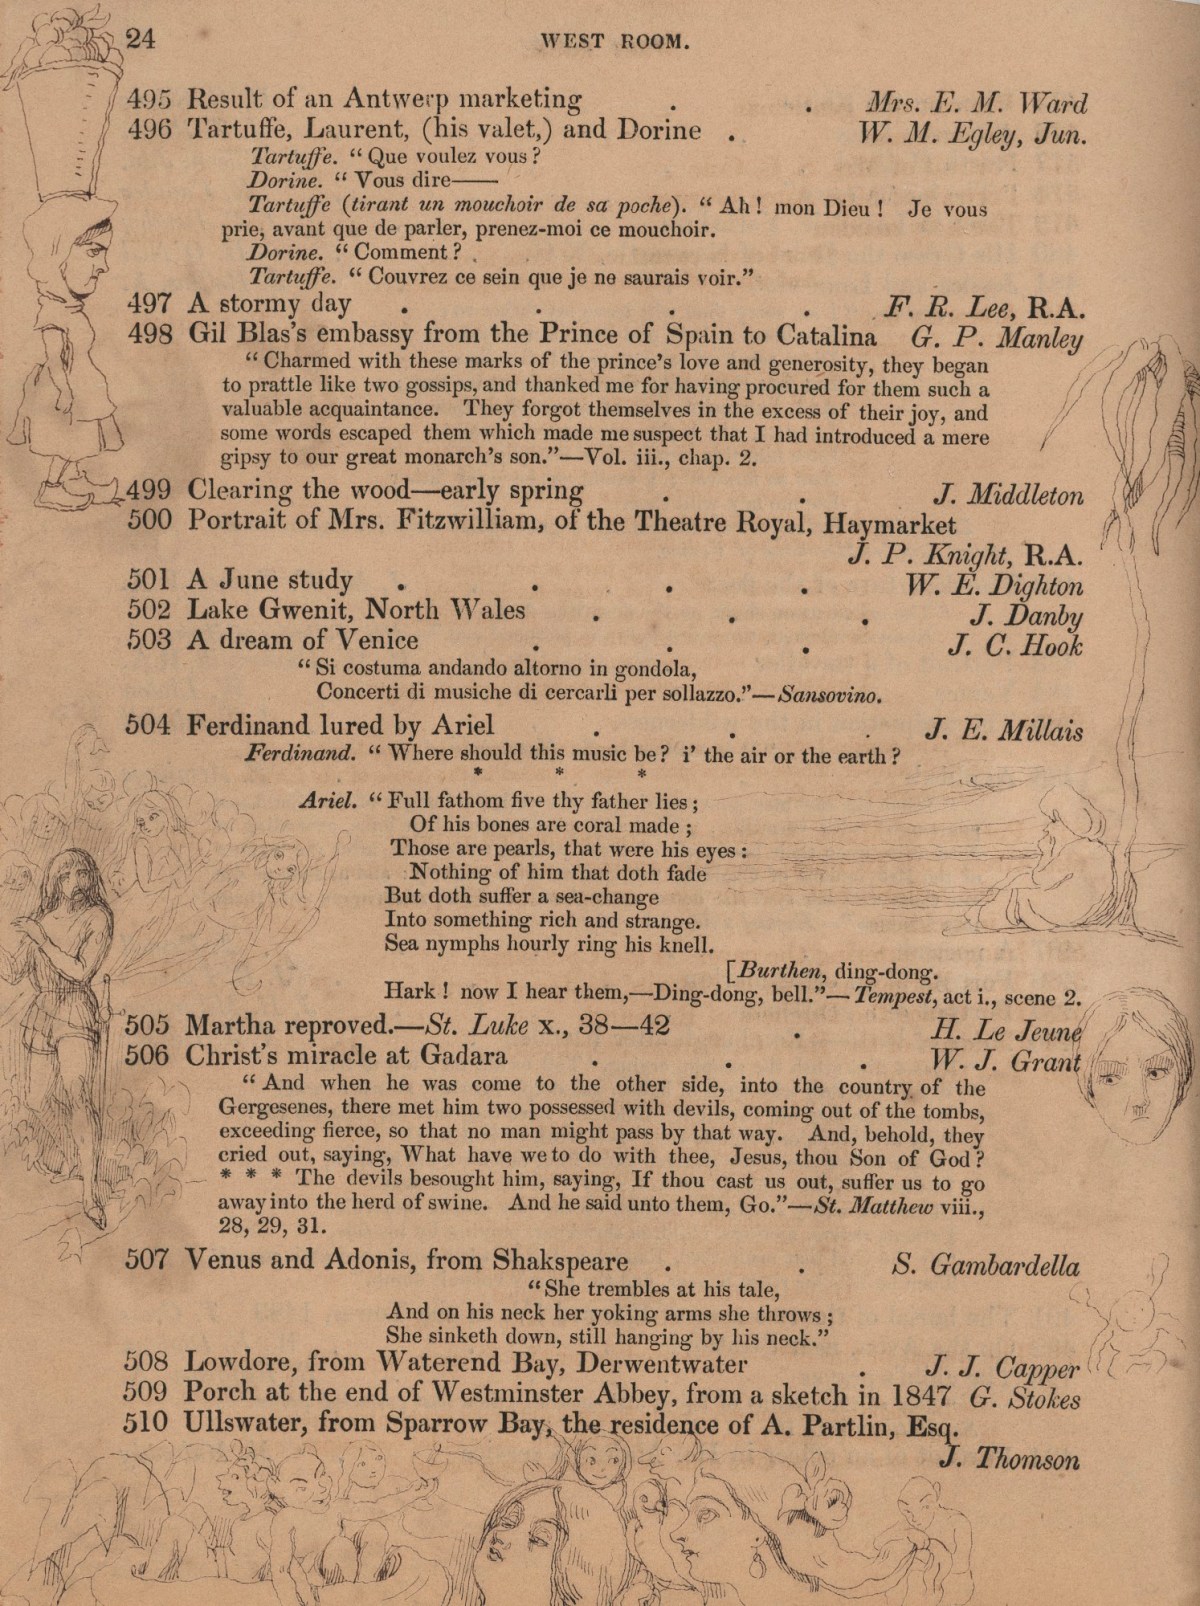 24 WEST ROOM.
495 Result of an Antwerp marketing . . Mrs. E. M. Ward
496 Tartuffe, Laurent, (his valet,) and Dorine . W. M. Egley, Jun.
Tartuffe. “ Que voulez vous ?
Dorine. “ Vous dire——
Tartuffe (tirant un mouchoir de sa poche). “ Ah ! mon Dieu ! Je vous
prie, avant que de parler, prenez-moi ce mouchoir.
Dorine. “ Comment ?
Tartuffe. “ Couvrez ce sein que je ne saurais voir.”
497 A stormy day . . . . F. R. Lee, R.A.
498 Gil Blas's embassy from the Prince of Spain to Catalina G. P. Manley
“ Charmed with these marks of the prince's love and generosity, they began
to prattle like two gossips, and thanked me for having procured for them such a
valuable acquaintance. They forgot themselves in the excess of their joy, and
some words escaped them which made me suspect that I had introduced a mere
gipsy to our great monarch's son.”—Vol. iii., chap. 2.
499 Clearing the wood—early spring . . J. Middleton
500 Portrait of Mrs. Fitzwilliam, of the Theatre Royal, Haymarket
J. P. Knight, R.A.
501 A June study . . . . W. E. Dighton
502 Lake Gwenit, North Wales . . . J. Danby
503 A dream of Venice . . . J. C. Hook
“ Si costuma andando altorno in gondola,
Concerti di musiche di cercarli per sollazzo.”—Sansovino.
504 Ferdinand lured by Ariel . . . J. E. Millais
Ferdinand. “ Where should this music be ? i' the air or the earth ?
* * *
Ariel. “ Full fathom five thy father lies ;
Of his bones are coral made ;
Those are pearls, that were his eyes :
Nothing of him that doth fade
But doth suffer a sea-change
Into something rich and strange.
Sea nymphs hourly ring his knell.
[Burthen, ding-dong.
Hark ! now I hear them,—Ding-dong, bell.”—Tempest, act i., scene 2.
505 Martha reproved.—St. Luke x., 38—42 . H. Le Jeune
506 Christ's miracle at Gadara . . . W. J. Grant
“ And when he was come to the other side, into the country of the
Gergesenes, there met him two possessed with devils, coming out of the tombs,
exceeding fierce, so that no man might pass by that way. And, behold, they
cried out, saying, What have we to do with thee, Jesus, thou Son of God ?
* * * The devils besought him, saying, If thou cast us out, suffer us to go
away into the herd of swine. And he said unto them, Go.”—St. Matthew viii.,
28, 29, 31.
507 Venus and Adonis, from Shakspeare . . S. Gambardella
“ She trembles at his tale,
And on his neck her yoking arms she throws ;
She sinketh down, still hanging by his neck.”
508 Lowdore, from Waterend Bay, Derwentwater . J. J. Capper
509 Porch at the end of Westminster Abbey, from a sketch in 1847 G. Stokes
510 Ullswater, from Sparrow Bay, the residence of A. Partlin, Esq.
J. Thomson